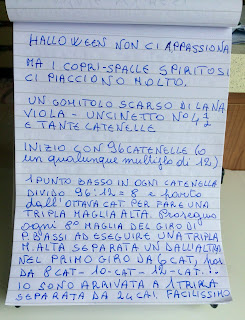 HALLOWEEN NON CI APPASSIONA
MA I COPRI-SPALLE SPIRITOSI
CI PIACCIONO MOLTO.
UN GOMITOLO SCARSO DI LANA
VIOLA - UNCINETTO Nº 4½
E TANTE CATENELLE
INIZIO CON 96 CATENELLE (O
un qualunque multiplo di 12)
1 PUNTO BASSO IN OGNI CATENELLA
DIVIDO 96:12=8 e parto
dall'OTTAVA CAT. PER FARE UNA
TRIPLA MAGLIA ALTA. Proseguo
ogni 8º MAGLIA DEL GIRO DI
P. BASSI AD ESEGUIRE UNA TRIPLA
M. ALTA SEPARATA UN DALL'ALTRA
NEL PRIMO GIRO DA 6 CAT, poi
DA 8 CAT - 10 - CAT - 12 - CAT. ..
IO SONO ARRIVATA A 1 TRIPLA
SEPARATA DA 24 CAT, FACILISSIMO